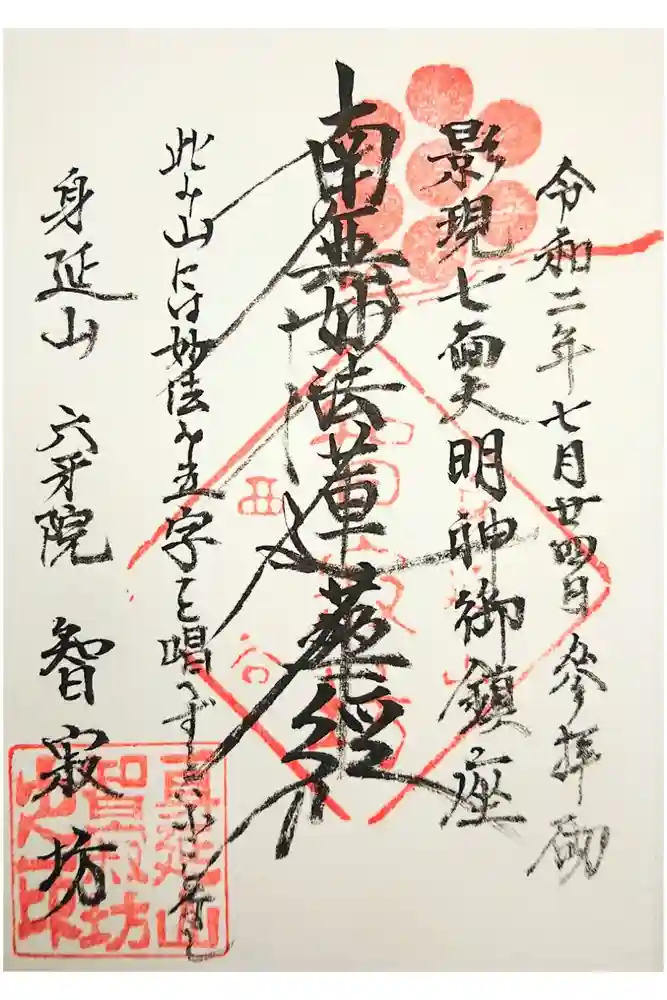 令和二年七月廿四日 参拝砌
影現七面大明神御鎮座
南無妙法蓮華経
此み山には妙法の五字を唱へず
身延山 六牙院 智寂坊
西 谷
身延山
智寂坊
之印